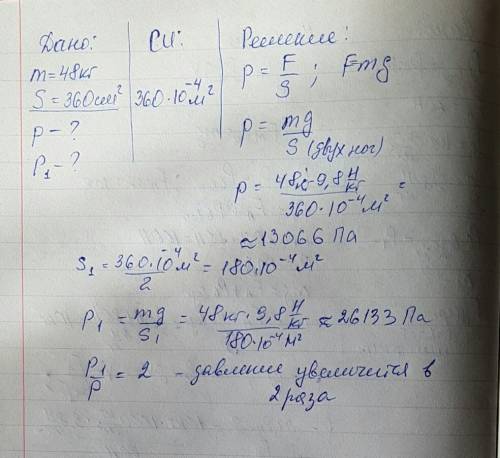 Дано:
m=48кг
S=360см²
p-?
P₁-?
СИ:
360·10⁻⁴м²
Решение:
p = F/S ; F=mg
p = mg/S (двух ног)
p = 48кг·9,8 Н/кг / 360·10⁻⁴м² =
≈13066 Па
S₁ = 360·10⁻⁴м²/2 = 180·10⁻⁴м²
P₁ = mg/S₁ = 48кг·9,8 Н/кг / 180·10⁻⁴м² ≈ 26133 Па
P₁/P = 2 - давление увеличится в
2 раза